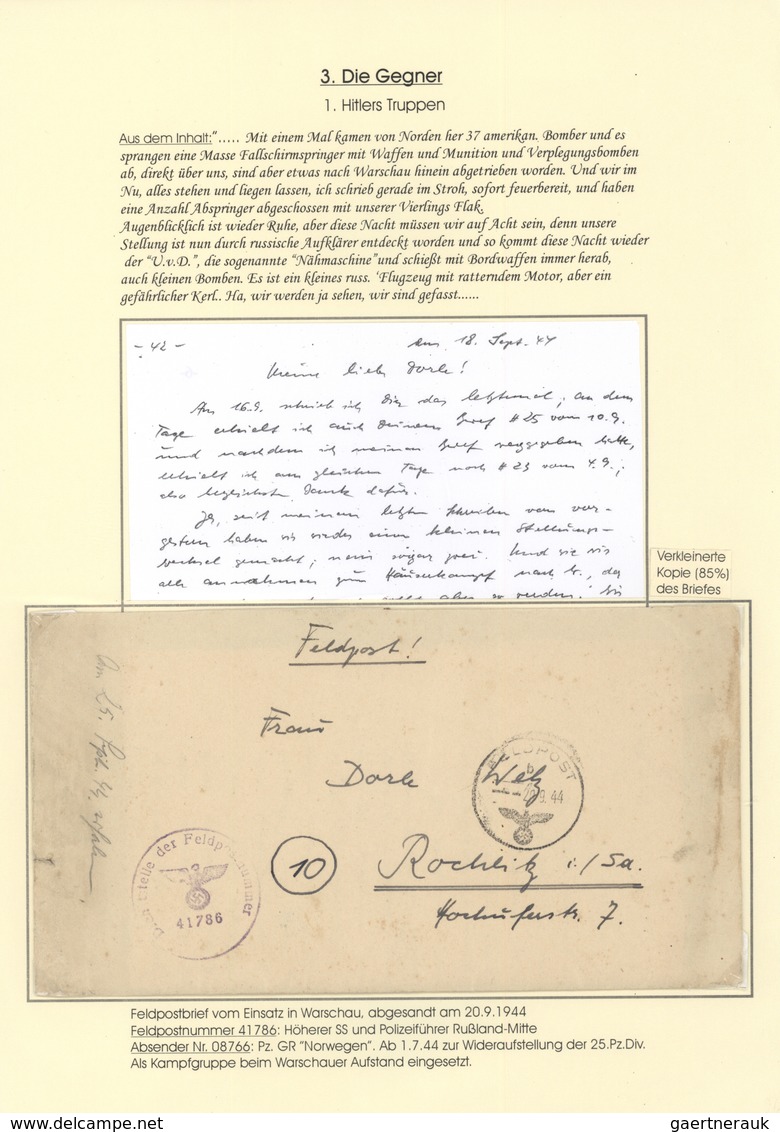 3. Die Gegner
1. Hitlers Truppen
Aus dem Inhalt:"..... Mit einem Mal kamen von Norden her 37 amerikan. Bomber und es
sprangen eine Masse Fallschirmspringer mit Waffen und Munition und Verplegungsbomben
ab, direkt über uns, sind aber etwas nach Warschau hinein abgetrieben worden. Und wir im
Nu, alles stehen und liegen lassen, ich schrieb gerade im Stroh, sofort feuerbereit, und haben
eine Anzahl Abspringer abgeschossen mit unserer Vierlings Flak.
Augenblicklich ist wieder Ruhe, aber diese Nacht müssen wir auf Acht sein, denn unsere
Stellung ist nun durch russische Aufklärer entdeckt worden und so kommt diese Nacht wieder
der "U.v.D.", die sogenannte "Nähmaschine"und schießt mit Bordwaffen immer herab,
auch kleinen Bomben. Es ist ein kleines russ. 'Flugzeug mit ratterndem Motor, aber ein
gefährlicher Kerl.. Ha, wir werden ja sehen, wir sind gefasst......
- 42 - am 18. Sept. 44
Meine liebe Dorle!
Am 16.9. schrieb ich Dir das letztemal, an dem
Tage erhielt ich auch Deinen Brief #25 vom 10.9.
und nachdem ich meinen Brief weggegeben hatte,
erhielt ich am gleichen Tage noch #23 vom 4.9.;
also herzlichsten Dank dafür.
Ja, seit meinem letzten Schreiben vom vor-
gestern haben wir wieder einen kleinen Stellungs-
wechsel gemacht; nein sogar zwei. Und wie wir
alle annahmen zum Häuserkampf nach W., der
Verkleinerte
Kopie (85%)
des Briefes
Feldpost!
Frau
Dorle Welz
FELDPOST
b
22.9.44
10
Rochlitz i./Sa.
Hochuferstr. 7.
Dienststelle der Feldpostnummer
41786
Am 25. Sept. 44 erhalten
Feldpostbrief vom Einsatz in Warschau, abgesandt am 20.9.1944
Feldpostnummer 41786: Höherer SS und Polizeiführer Rußland-Mitte
Absender Nr. 08766: Pz. GR "Norwegen". Ab 1.7.44 zur Wideraufstellung der 25.Pz.Div.
Als Kampfgruppe beim Warschauer Aufstand eingesetzt.
www.delcampe.net
gaertnerauk